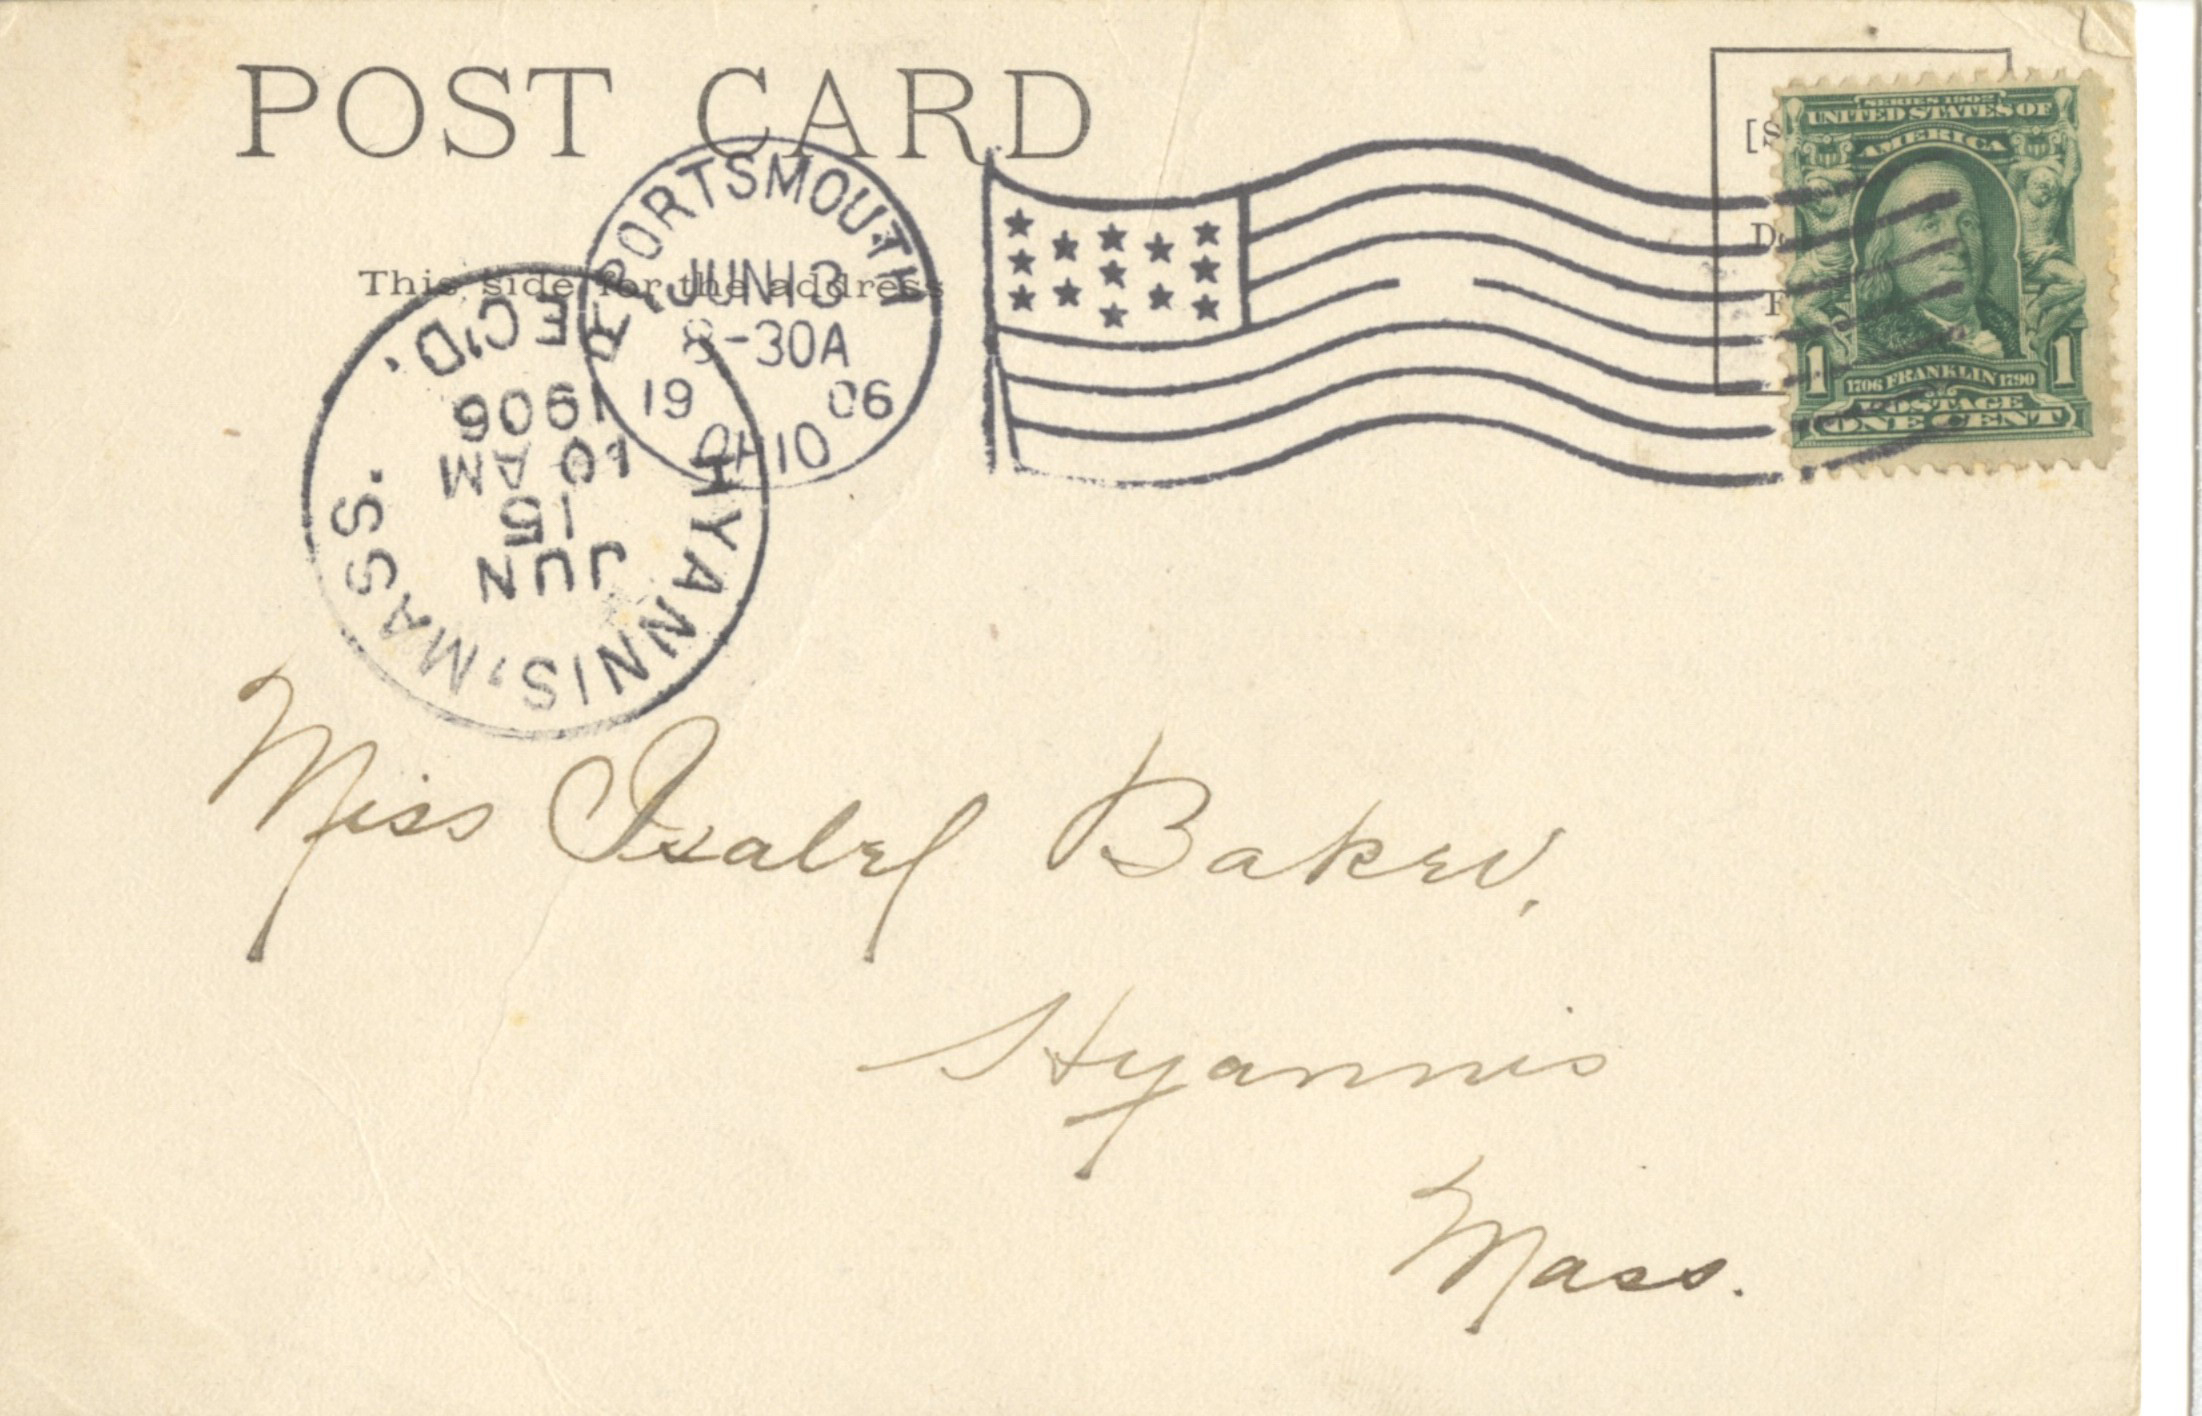 POST CARD
This side for the address
PORTSMOUTH
JUN 13
8-30A
19 06
OHIO
HYANNIS, MASS.
JUN
15
10 AM
1906
REC'D.
SERIES 1902
UNITED STATES OF
AMERICA
1 1
1706 FRANKLIN 1790
POSTAGE
ONE CENT
Miss Isabel Baker,
Hyannis
Mass.